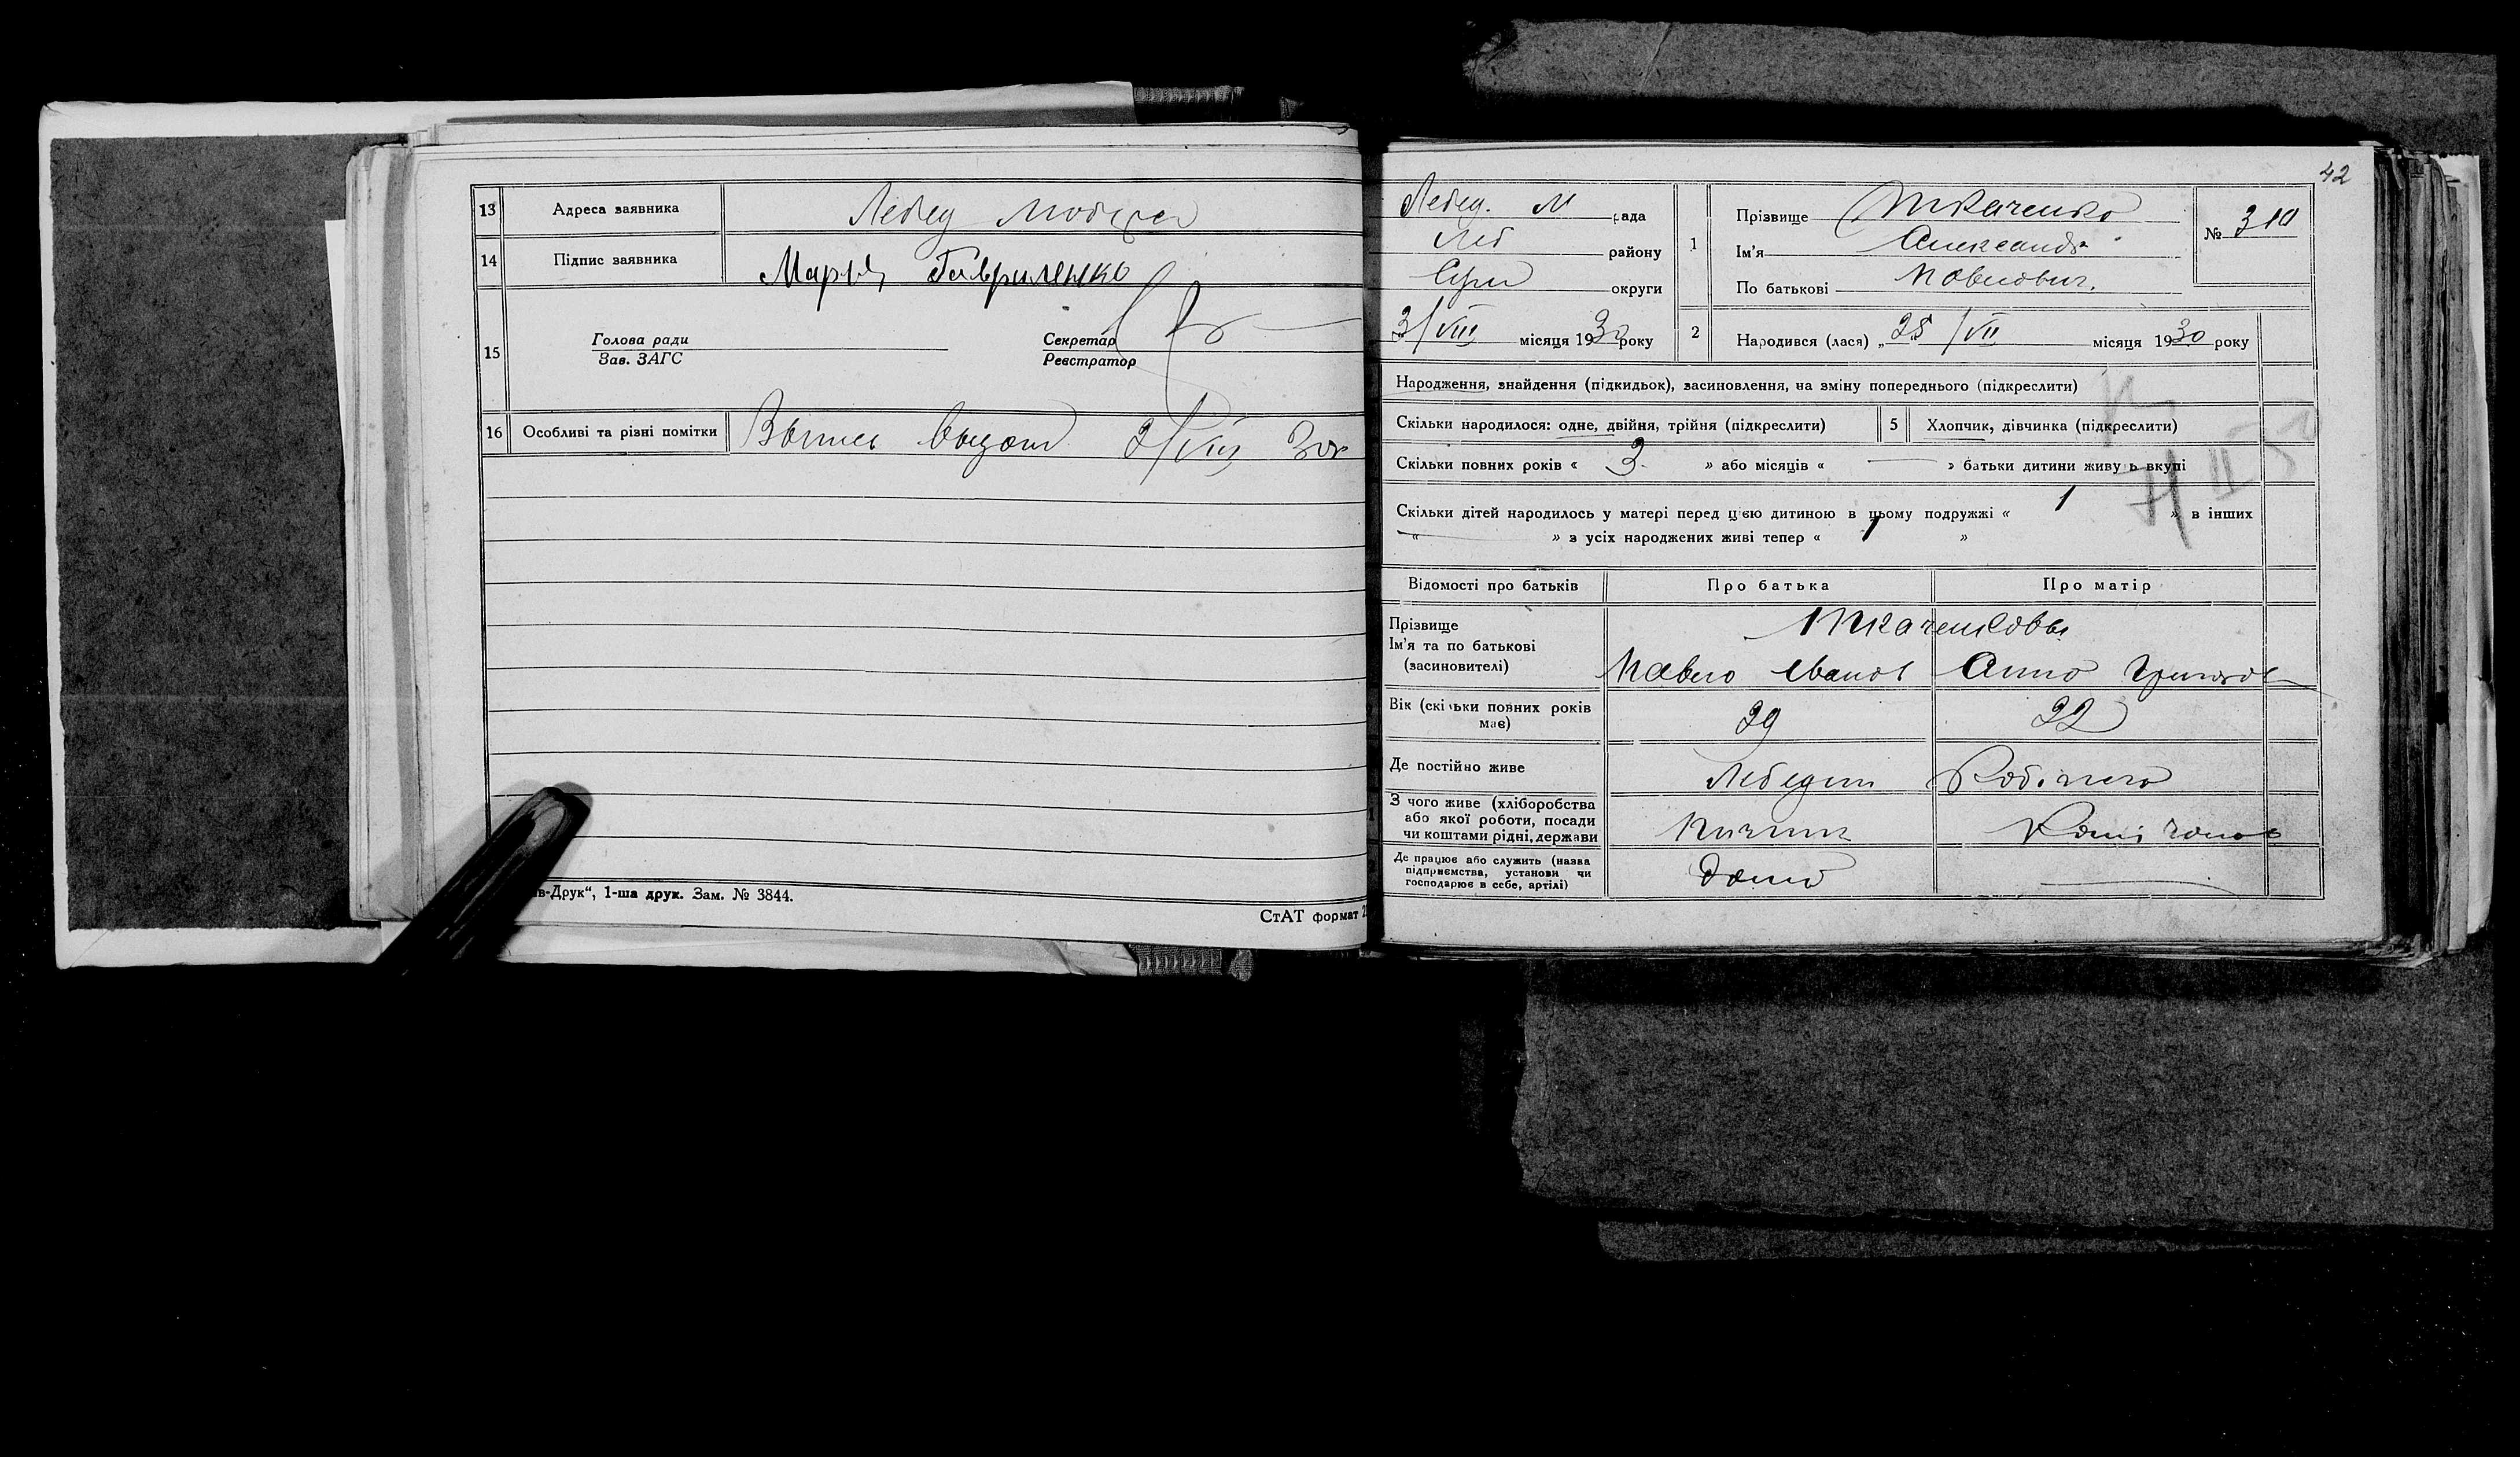 13 Адреса заявника Лебед
14 Підпис заявника Гавриленко
15 Голова ради Секретар
Зав. ЗАГС Реєстратор
16 Особливі та різні помітки 2/VIII 30
в-Друк“, 1-ша друк. Зам. № 3844.
СтАТ формат
42
Лебед. М рада
Леб району
Сум округи
3/VIII місяця 1930 року
1 Прізвище Ткаченко
Ім'я Александр
По батькові Павлович.
№ 310
2 Народився (лася) „ 28/VII місяця 1930 року
Народження, знайдення (підкидьок), засиновлення, на зміну попереднього (підкреслити)
Скільки народилося: одне, двійня, трійня (підкреслити) 5 Хлопчик, дівчинка (підкреслити)
Скільки повних років « 3 » або місяців « — » батьки дитини живуть вкупі
Скільки дітей народилось у матері перед цією дитиною в цьому подружжі « 1 » в інших
« — » з усіх народжених живі тепер « 1 »
Відомості про батьків Про батька Про матір
Прізвище Ткаченковы
Ім'я та по батькові
(засиновителі) Павло Иванов Анна Григоров
Вік (скільки повних років
має) 29 22
Де постійно живе Лебедин
З чого живе (хліборобства
або якої роботи, посади
чи коштами рідні, держави
Де працює або служить (назва
підприємства, установи чи
господарює в себе, артілі) дома —